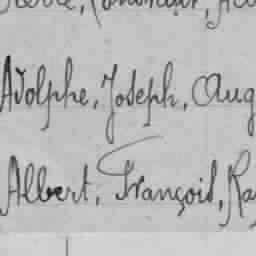 Adolphe, Joseph, Aug
Albert, François, Ra